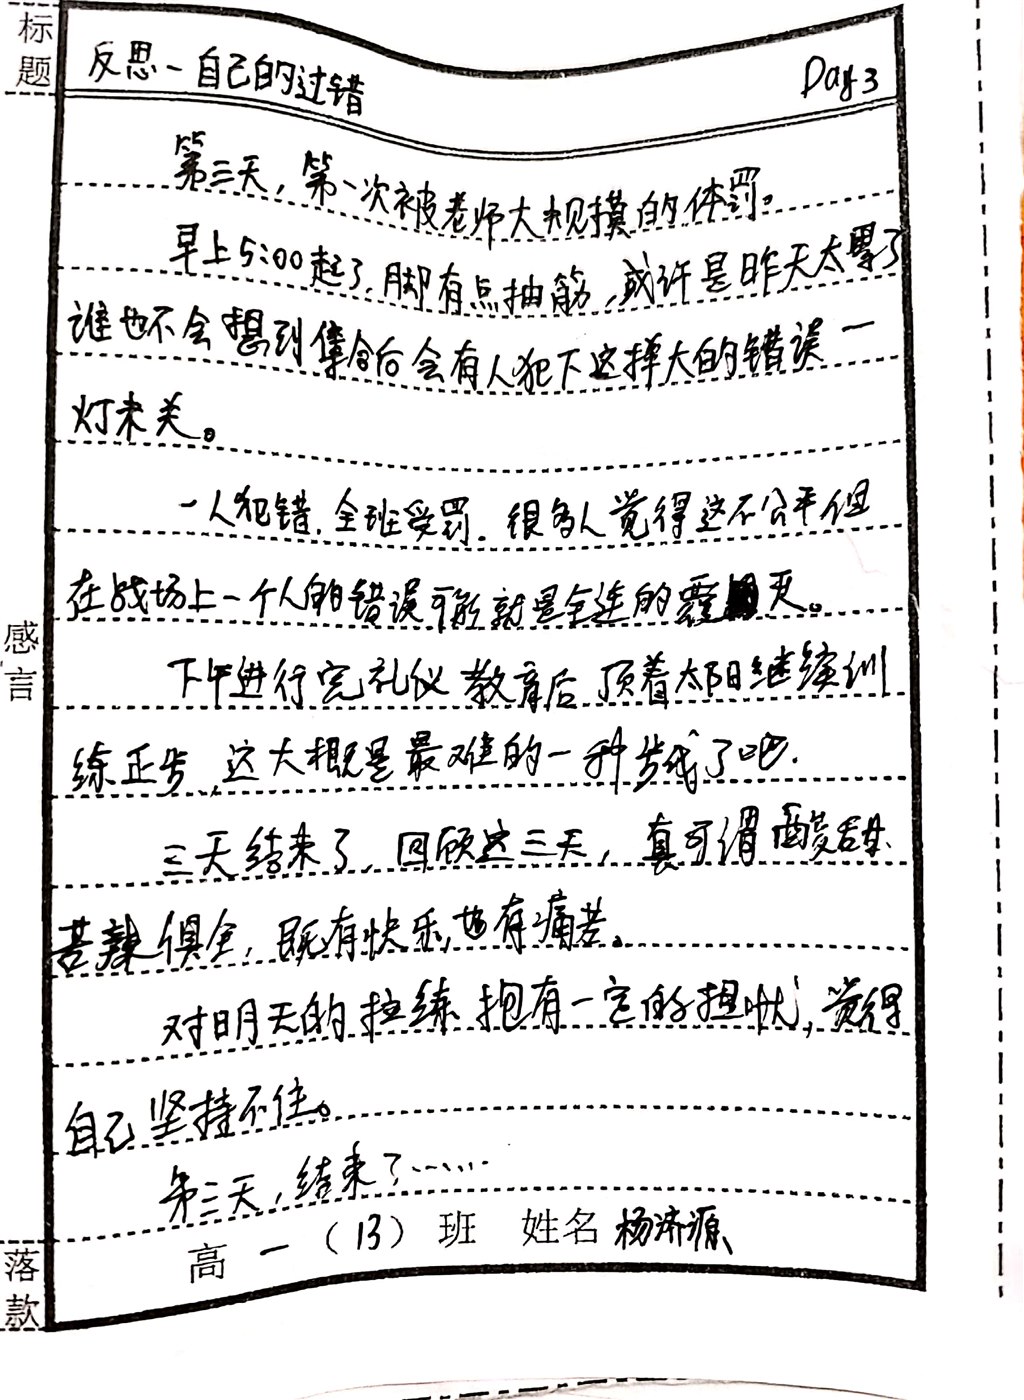 标题
反思-自己的过错 Day 3
第三天，第一次被老师大规摸的体罚。
早上5:00起了，脚有点抽筋，或许是昨天太累了
谁也不会想到集合后会有人犯下这样大的错误一
灯未关。
一人犯错，全班受罚。很多人觉得这不公平但
在战场上一个人的错误可能就是全连的覆灭。
下午进行完礼仪教育后顶着太阳继续训
练正步，这大概是最难的一种步伐了吧.
三天结束了，回顾这三天，真可谓酸甜
苦辣俱全，既有快乐，也有痛苦。
对明天的拉练抱有一定的担忧，觉得
自己坚持不住。
第三天，结束了……
感言
落款
高一（13）班 姓名 杨济源